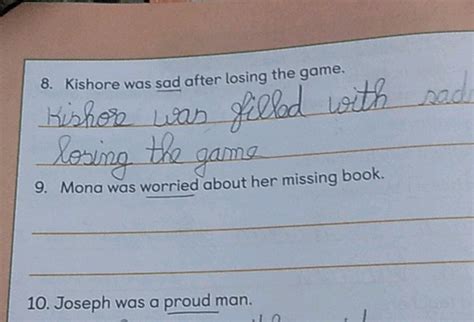 8. Kishore was sad after losing the game.
Kishore was filled with sad
losing the game
9. Mona was worried about her missing book.
10. Joseph was a proud man.